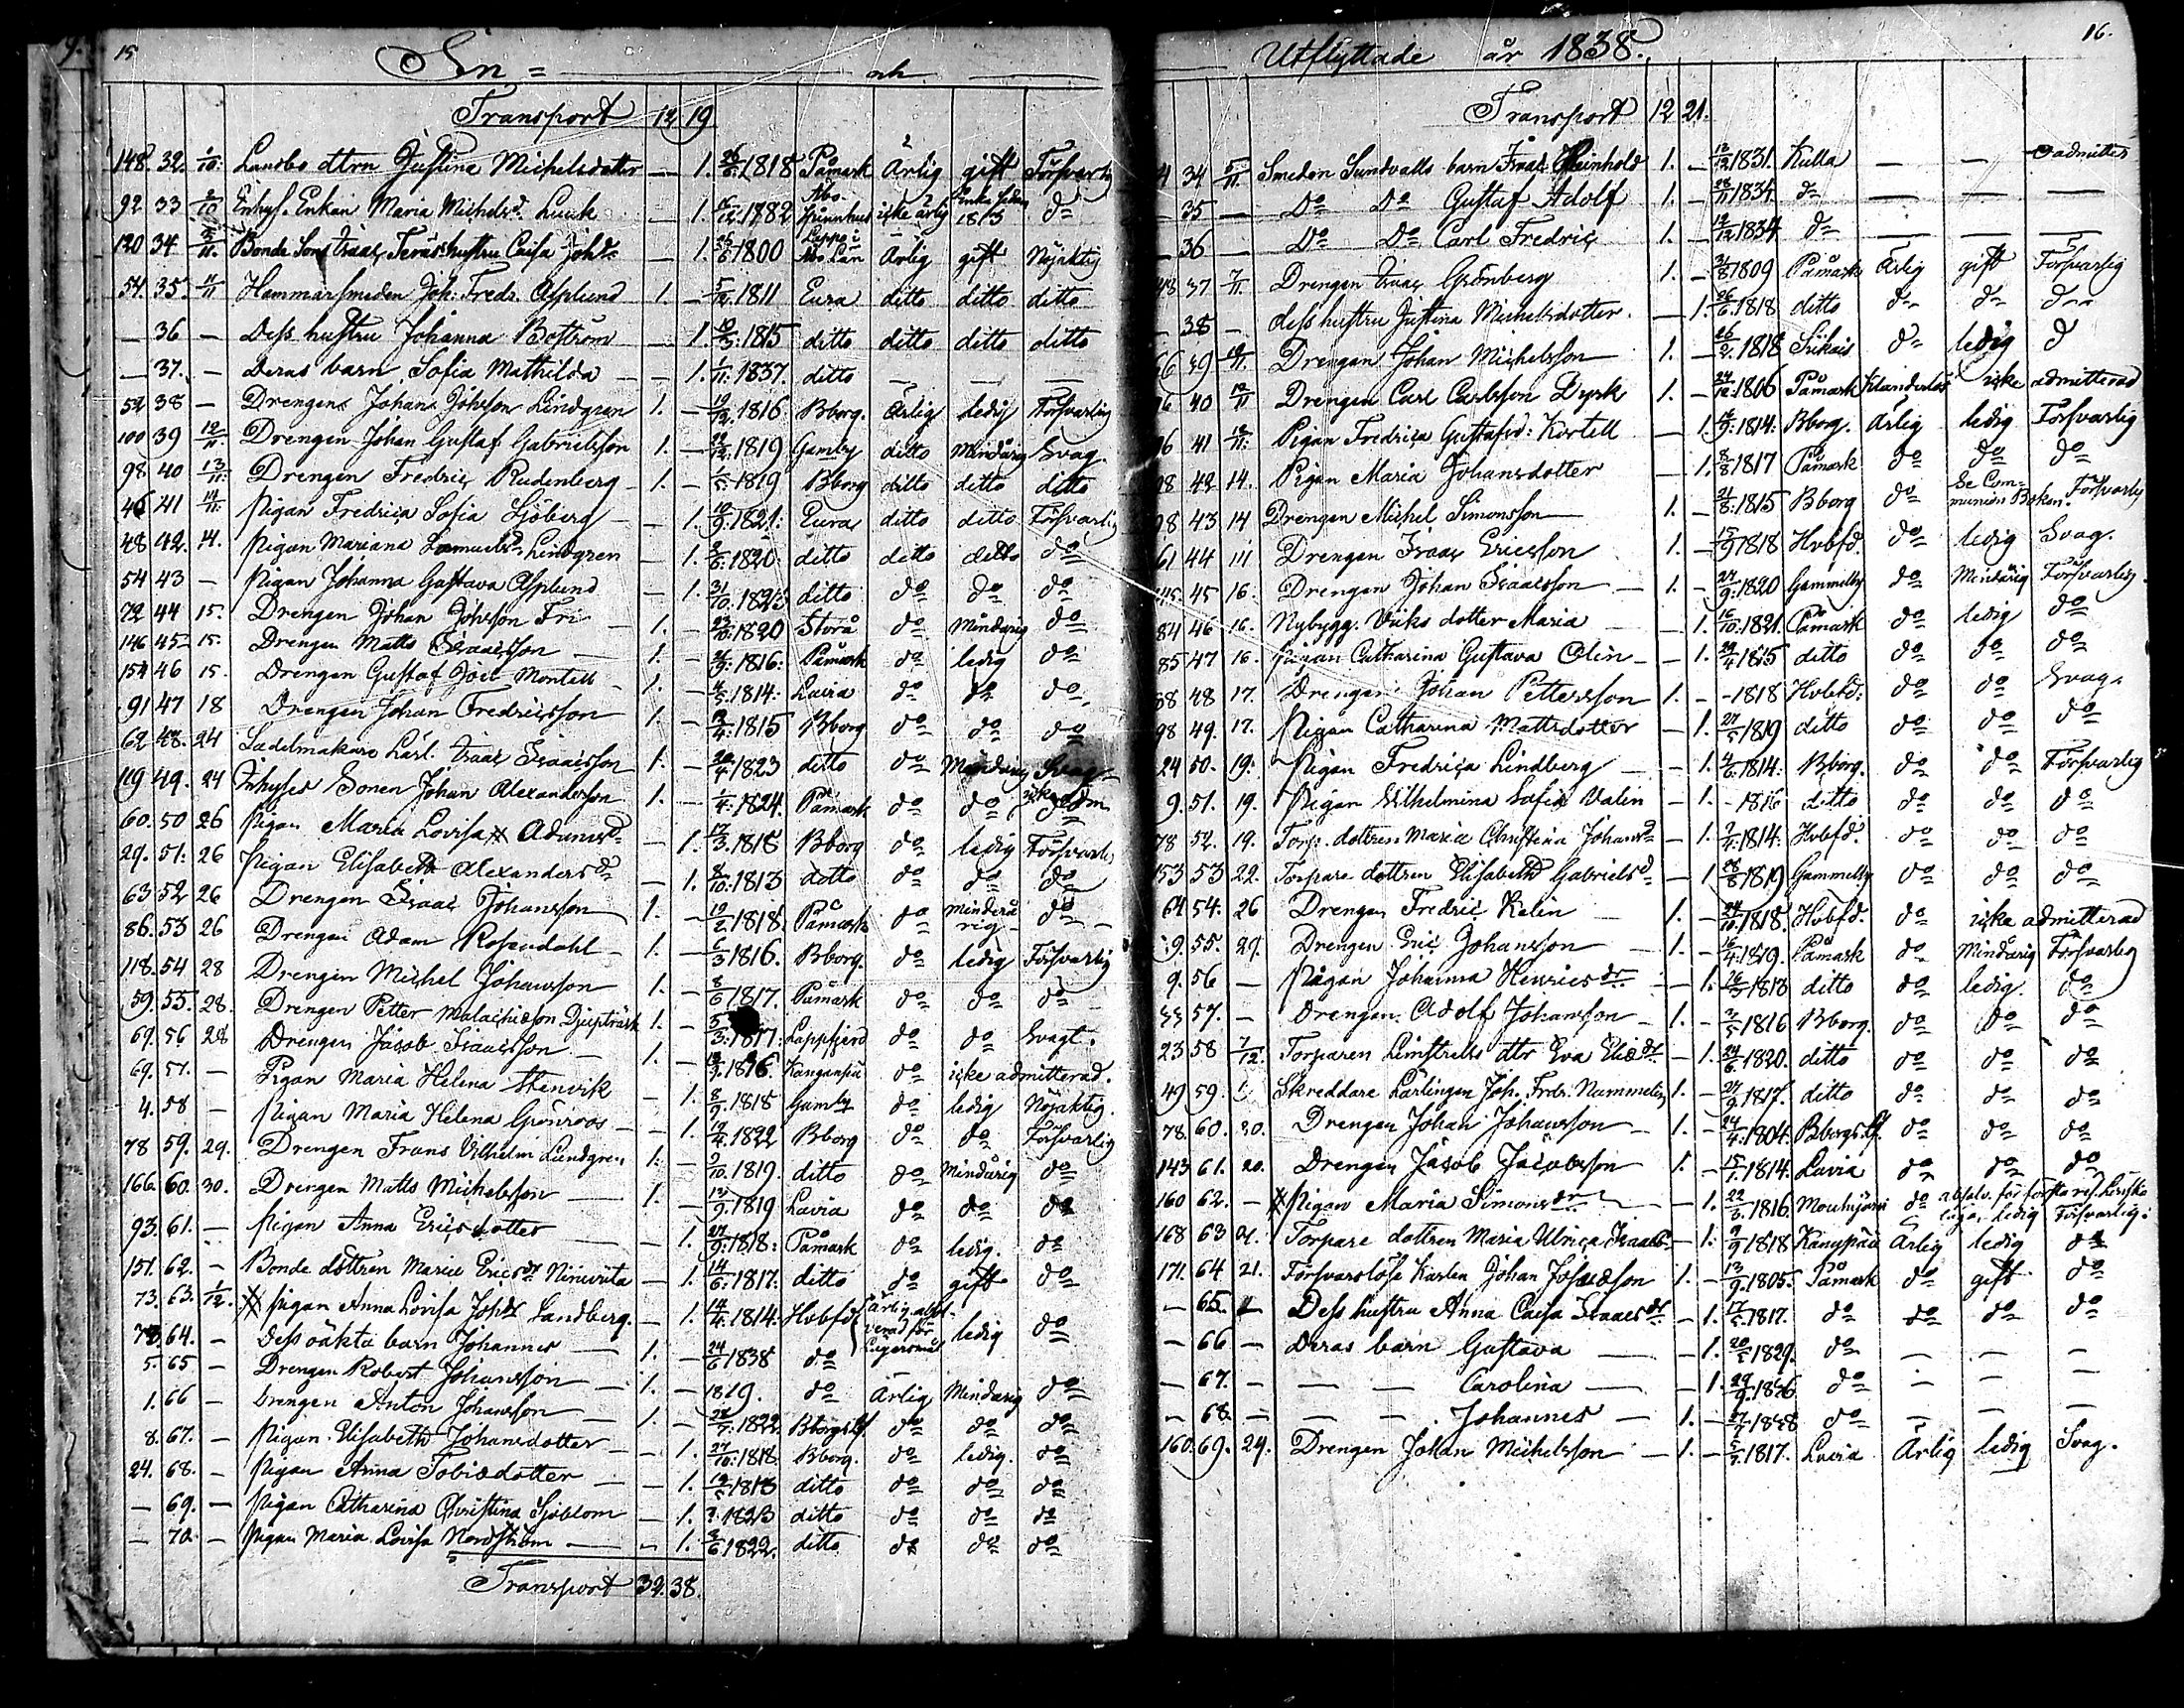 15
In = och
Transport 12 19
148. 32. 1/10. Landbo dttrn Justina Michelsdotter — 1. 26/6 1818 Påmark Ärlig gift Försvarlig
92 33 Inhys. Enkan Maria Michelsd. Luuk — 1. 1782 Åbo Spinnhus icke ärlig Enka sedan 1813 do
120 34 Bonde Sons Isaac hustru Caisa Johd. — 1. 26/6 1800 Lappo i Åbo Län Ärlig gift Nöjaktig
54. 35. 11/11 Hammarsmeden Joh: Fredr. Asplund 1. — 1811 Eura ditto ditto ditto
— 36 — Dess hustru Johanna Boström — 1. 10/3. 1815 ditto ditto ditto ditto
— 37. — Deras barn Sofia Mathilda — 1. 1/11. 1837. ditto — — —
52 38 — Drengen Johan Johsson Lindgren 1. — 19/12. 1816 Bborg. Ärlig ledig Försvarlig
100 39 12/11. Drengen Johan Gustaf Gabrielsson 1. — 22/12. 1819 Gamby ditto Mindårig Svag.
98. 40 13/11. Drengen Fredric Rudenberg 1. — 1/5. 1819 Bborg ditto ditto ditto
46 41 14/11. Pigan Fredrica Sofia Sjöberg — 1. 10/9. 1821: Eura ditto ditto Försvarlig
48 42. 14. Pigan Mariana Samuelsd. Lindgren — 1. 1820 ditto ditto ditto do
54 43 — Pigan Johanna Gustava Asplund — 1. 31/10. ditto do do do
72 44 15. Drengen Johan Johsson Fri 1. — 23/10. 1820 Storå do Mindårig do
146 45 15. Drengen Matts Isaacsson 1. — 1816: Påmark do ledig do
154 46 15. Drengen Gustaf Joel Montell 1. — 1814: Lavia do do do
91 47 18 Drengen Johan Fredricsson 1. — 1815 Bborg do do do
62 48. 24 Sadelmakare Lärl. Isaac Isaacsson 1. — 20/4. 1823 ditto do Mindårig Svag
119 49. 24 Inhyses Sonen Johan Alexandersson 1. — 1/4. 1824. Påmark do do icke adm
60. 50 26 Pigan Maria Lovisa Adamsd. — 1. 17/3. 1818 Bborg do ledig Försvarli
29. 51: 26 Pigan Elisabeth Alexandersd — 1. 8/10. 1813 ditto do do do
63 52 26 Drengen Isaac Johansson 1. — 19/2. 1818 Påmark do Minderårig do
86. 53 26 Drengen Adam Rosendahl 1. — 6/3 1816. Bborg. do ledig Försvarlig
118. 54 28 Drengen Michel Johansson 1. — 8/6 1817. Påmark do do do
59. 55. 28. Drengen Petter Malachiæson Djupträsk 1. — 3. 1817: Lappfjerd do do Svagt.
69. 56 28 Drengen Jacob Isaacsson 1. — 1816. Kanganpää do icke admitterad.
69. 57. — Pigan Maria Helena Stenvik — 1. 8/9. 1818 Gamby do ledig Nöjaktig.
4. 58 — Pigan Maria Helena Grönroos — 1. 19/4. 1822 Bborg do do Försvarlig
78 59. 29. Drengen Frans Vilhelm Lundgren 1. — 9/10. 1819. ditto do Mindårig do
166. 60. 30. Drengen Matts Michelsson 1. — 1819 Lavia do do do
93. 61. — Pigan Anna Ericsdotter — 1. 27/9. 1818: Påmark do ledig. do
151. 62. — Bonde dottren Maria Ericsdr Niniviita — 1. 14/6. 1817: ditto do gift do
73. 63. 1/12. Pigan Anna Lovisa Johdr Sandberg. — 1. 14/4. 1814: Hvbfd ärlig absolverad för Lägersmål ledig do
73. 64. — Dess oäkta barn Johannes 1. — 24/6 1838 do
5. 65 — Drengen Robert Johansson 1. — 1819. do Ärlig Mindårig do
1. 66 — Drengen Anton Johansson 1. — 1822. Bborgs Lf do do do
8. 67. — Pigan Elisabeth Johansdotter — 1. 27/10. 1818 Bborg. do ledig. do
24. 68. — Pigan Anna Tobiædotter — 1. 1818 ditto do do do
— 69. — Pigan Catharina Christina Sjöblom — 1. ditto do do do
— 70. — Pigan Maria Lovisa Nordström — 1. 1822. ditto do do do
Transport 32. 38.
16.
Utflyttade år 1838.
Transport 12 21.
4 34 5/11. Smeden Sundvalls barn Isaac Reinhold 1. — 1831. Kulla — — oadmitter
— 35 — Do Do Gustaf Adolf 1. — 1834. do — — —
— 36 — Do Do Carl Fredric 1. — 12/12 1834 do — — —
48 37 7/11. Drengen Isaac Grönberg 1. — 31/8 1809 Påmark Ärlig gift Försvarlig
— 38 — dess hustru Justina Michelsdotter. — 1. 26/6. 1818 ditto do do do
66 39 Drengen Johan Michelsson 1. — 26/2. 1818 Siikais do ledig do
76 40 12/11 Drengen Carl Carlsson Dyrk 1. — 24/12. 1806 Påmark Klanderlös icke admitterad
96 41 12/11. Pigan Fredrica Gustafsd: Kortell — 1. 1814: Bborg. Ärlig ledig Försvarlig
98 42 14. Pigan Maria Johansdotter — 1. 8/8 1817 Påmark do do do
98 43 14 Drengen Michel Simonsson 1. — 21/8. 1815 Bborg do Se Communion Boken. Försvarlig
61 44 14 Drengen Isaac Ericsson 1. — 15/9 1818 Hvbfd. do ledig Svag.
45 16. Drengen Johan Isaacsson 1. — 27/9. 1820 Gammelby do Mindårig Försvarlig.
84 46 16. Nybygg. Viiks dotter Maria — 1. 16/10. 1821. Påmark do ledig do
85 47 16. Pigan Catharina Gustava Olin — 1. 29/4 1815 ditto do do do
58 48 17. Drengen Johan Pettersson 1. — 1818 Hvbfd: do do Svag.
98 49. 17. Pigan Catharina Mattsdotter — 1. 27/5 1819 ditto do do do
24 50. 19. Pigan Fredrica Lindberg — 1. 4/6. 1814: Bborg. do do Försvarlig
9. 51. 19. Pigan Wilhelmina Sofia Valin — 1. — 1816 ditto do do do
78 52. 19. Torp. dottren Maria Christina Johansd — 1. 1814: Hvbfd. do do do
153 53 22. Torpare dottren Elisabeth Gabrielsd. — 1 28/8 1819 Gammelby do do do
64 54. 26 Drengen Fredric Kelin 1. — 24/10. 1818. Hvbfd. do icke admitterad
9. 55. 27. Drengen Eric Johansson 1. — 16/4. 1819. Påmark do Mindårig Försvarlig
9. 56 — Pigan Johanna Henricsdr — 1. 26/3 1818 ditto do ledig. do
57. — Drengen Adolf Johansson 1. — 1816 Bborg. do do do
23 58 7/12. Torparen Limstrells dttr Eva Eliædr — 1. 24/6. 1820. ditto do do do
49 59. Skreddare Lärlingen Joh. Fredr. Nummelin 1. — 1817. ditto do do do
78. 60. 20. Drengen Johan Johansson 1. — 24/4. 1804. Bborgs Lf. do do do
143 61. 20. Drengen Jacob Jacobsson 1. — 15/1. 1814. Lavia do do do
160 62. — Pigan Maria Simonsdr — 1. 22/3. 1816. Mouhijärvi do absolv. för första res. Lönska läge, ledig Försvarlig.
168 63 21. Torpare dottren Maria Ulrica Isaacsd. — 1. 9/9 1818 Kangapää Ärlig ledig do
171. 64 21. Försvarslöse Karlen Johan Josæson 1. — 13/9. 1805. Påmark do gift do
— 65. — Dess hustru Anna Caisa Isaacsdr — 1. 1817. do do do do
— 66 — Deras barn Gustava — 1. 1829. do — — —
— 67. — — — Carolina — 1. do — — —
— 68. — — — Johannes 1. — do — — —
160. 69. 24. Drengen Johan Michelsson 1. — 1817. Lavia Ärlig ledig Svag.